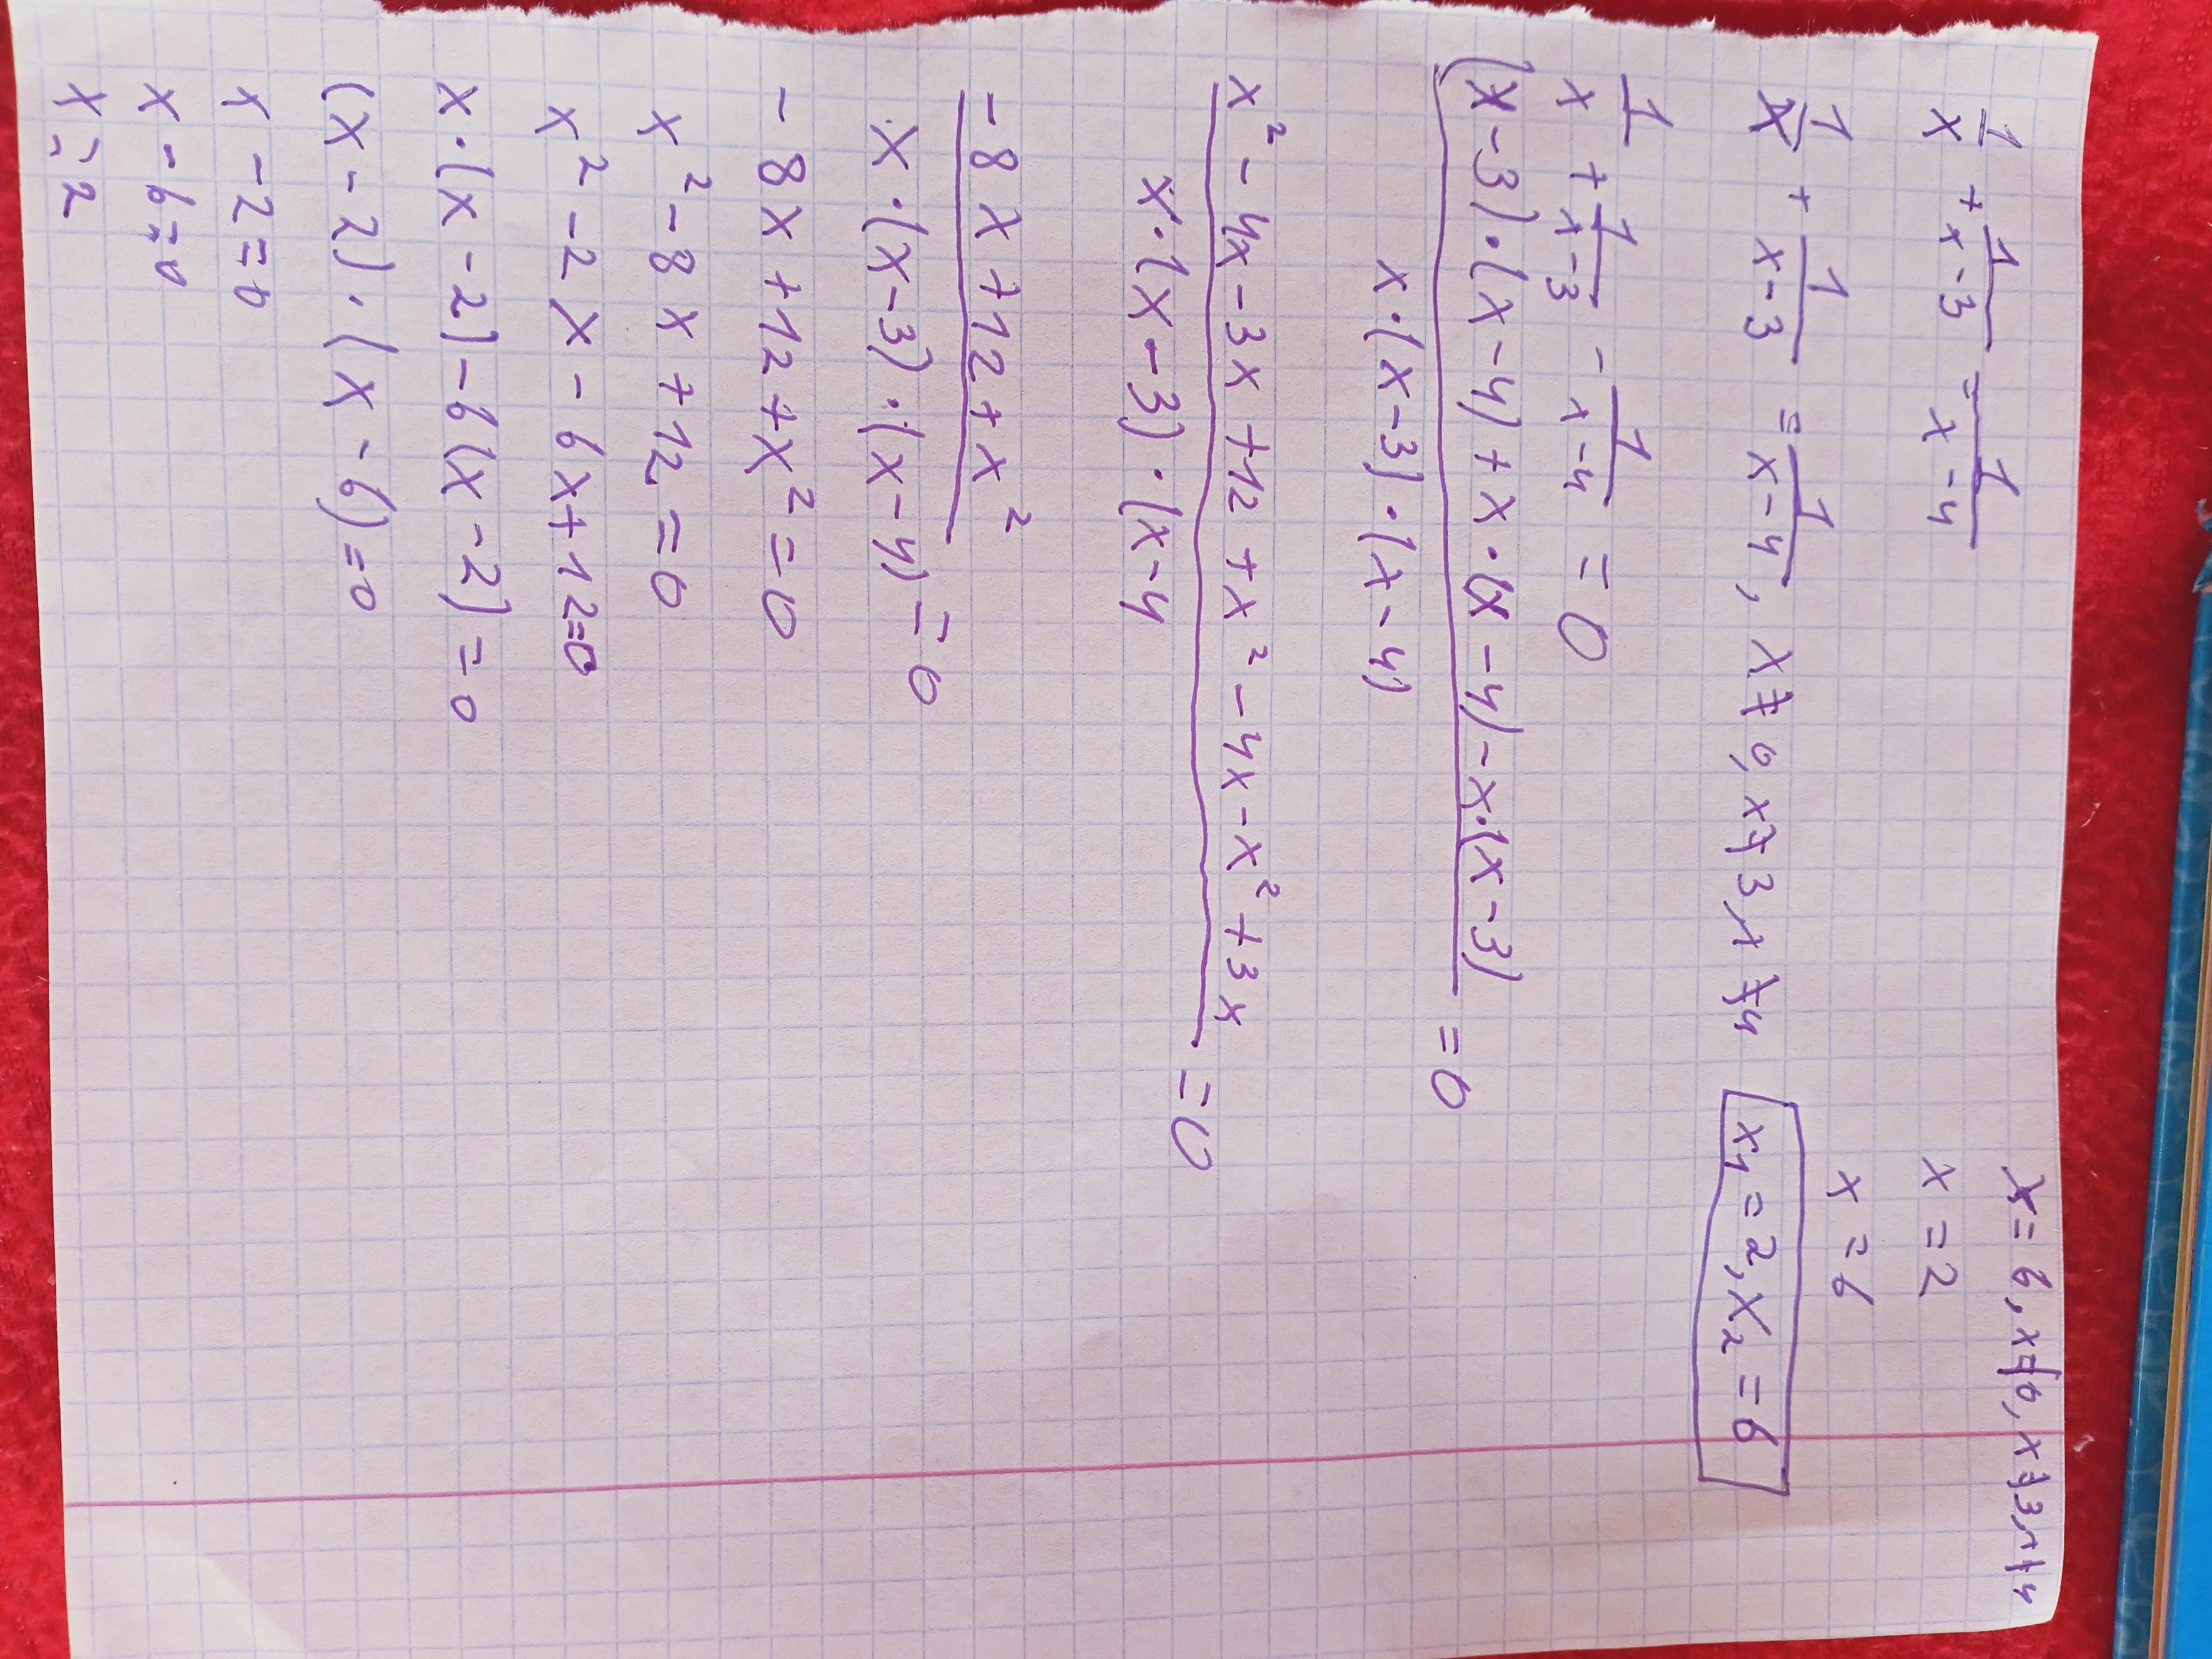 1/x + 1/x-3 = 1/x-4
1/x + 1/x-3 = 1/x-4, x≠0, x≠3, x≠4
1/x + 1/x-3 - 1/x-4 = 0
(x-3)·(x-4)+x·(x-4)-x·(x-3) = 0
x·(x-3)·(x-4)
x²-4x-3x+12+x²-4x-x²+3x = 0
x·(x-3)·(x-4
-8x+12+x²
x·(x-3)·(x-4) = 0
-8x+12+x²=0
x²-8x+12=0
x²-2x-6x+12=0
x·(x-2)-6(x-2)=0
(x-2)·(x-6)=0
x-2=0
x-6=0
x=2
x=6, x≠0, x≠3, x≠4
x=2
x=6
x₁=2, x₂=6